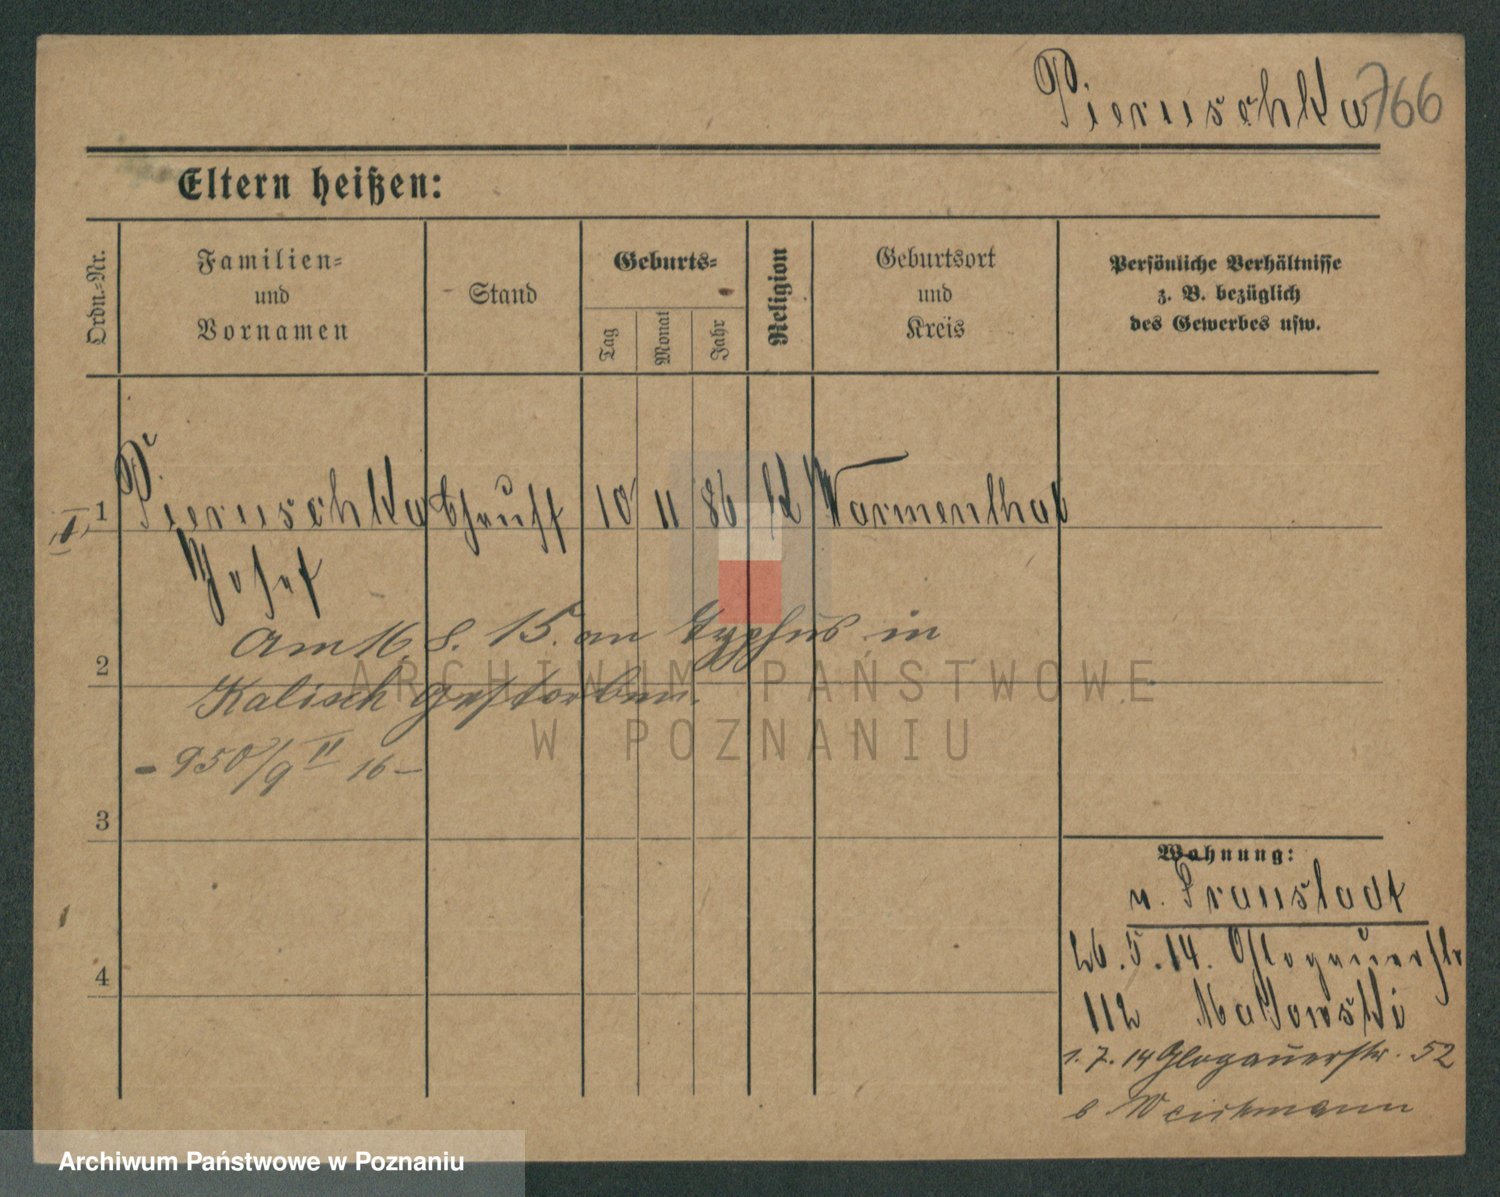 Pieruschka 766
Eltern heißen:
Ordn.-Nr.
Familien-
und
Vornamen
Stand
Geburts-
Tag
Monat
Jahr
Religion
Geburtsort
und
Kreis
Persönliche Verhältnisse
z. B. bezüglich
des Gewerbes usw.
1 Pieruschka 10 11 86 K Warmenthal
Josef
Am 16. 8. 15. an Typhus in
2
Kalisch gestorben.
- 950/9 II 16 -
3
Wohnung:
v. Fraustadt
26. 5. 14. Glogauerstr
4
112
1. 7. 14 Glogauerstr. 52
b
ARCHIWUM PAŃSTWOWE
W POZNANIU
Archiwum Państwowe w Poznaniu